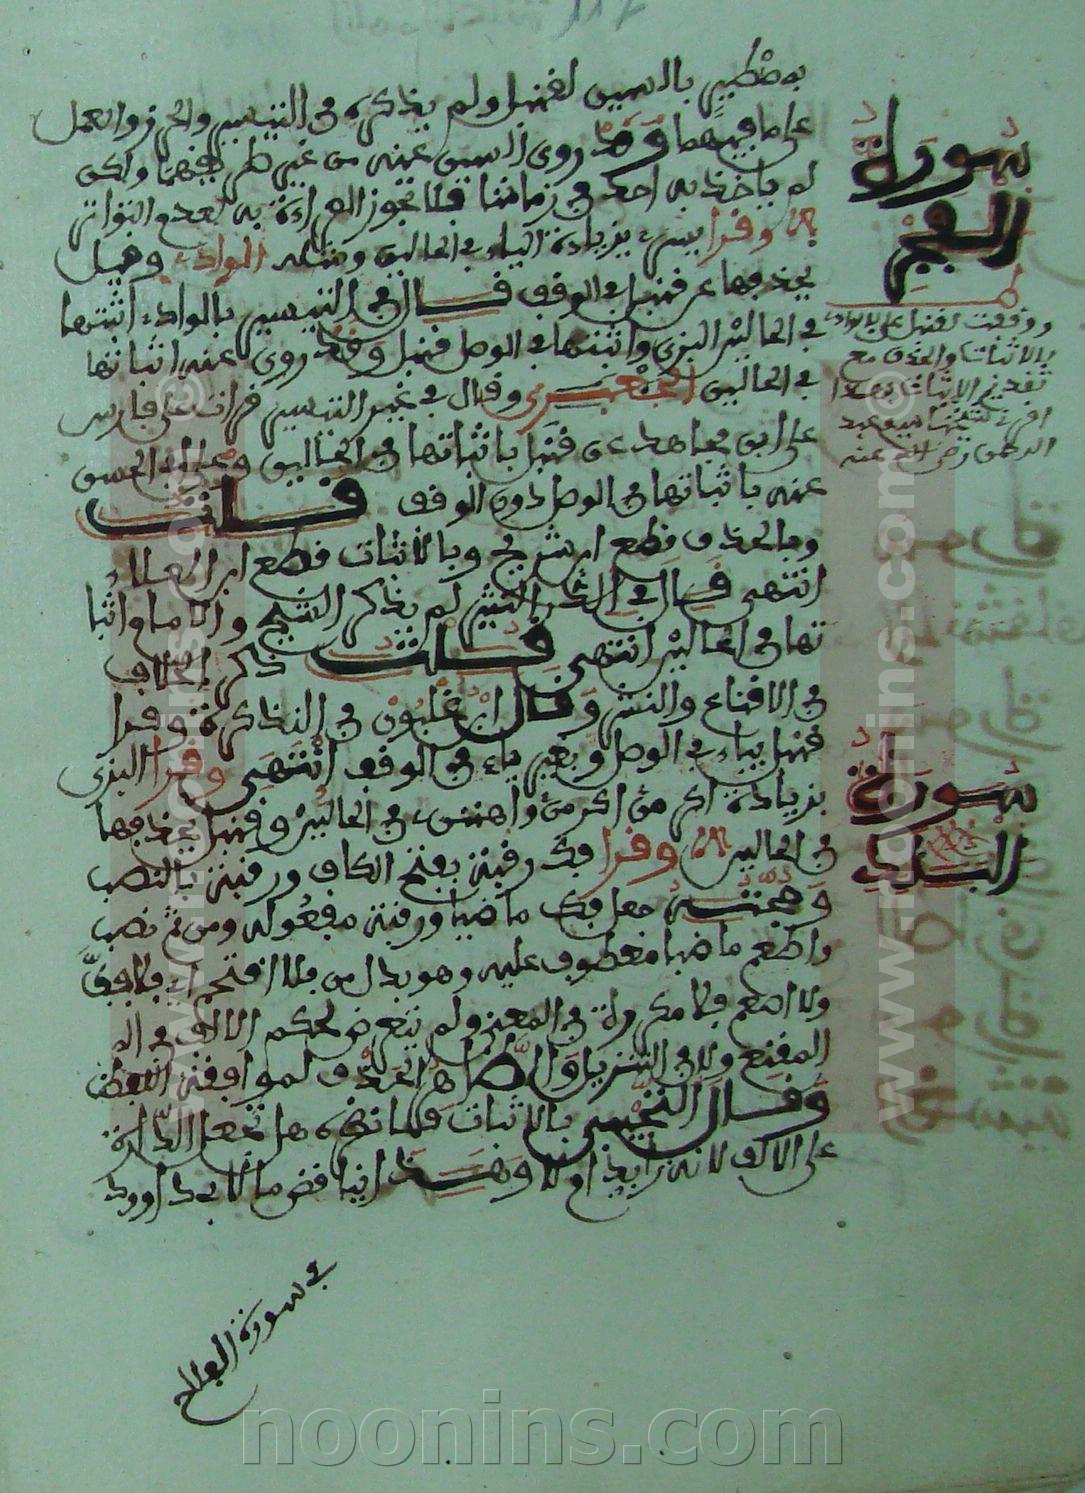 بمصيطر بالسين لقنبل ولم يذكره في التيسير والحرز والعمل
على ما فيهما وقد روى السين عنه من غير طريقهما ولكن
لم ياخذ به احد في زماننا فلا تجوز القراءة به لعدم التواتر
وقرا يسر بزيادة الياء في الحالين ومثله الواد وقيل
يحذفها عن قنبل في الوقف قال في التيسير بالواد اثبتها
في الحالين البزي واثبتها في الوصل قنبل وقد روي عنه اثباتها
في الحالين الجعبري وقال في غير التيسير قرات على فارس
على ابن مجاهد عن قنبل باثباتها في الحالين وعلى ابي الحسن
عنه باثباتها في الوصل دون الوقف قلت
وبالحذف قطع ابن شريح وبالاثبات قطع ابو العلا
انتهى قال في النثير لم يذكر الشيخ والامام اثبا
تها في الحالين انتهى قلت ذكر الخلاف
في الاقناع والنشر وقال ابن غلبون في التذكرة وقرا
قنبل بياء في الوصل وبغير ياء في الوقف انتهى وقرا البزي
بزيادة اكرمن واهانن في الحالين وقنبل بحذفها
في الحالين وقرا فك رقبة بفتح الكاف ورقبة بالنصب
وحجته جعل فك ماضيا ورقبة مفعوله ومن ثم نصب
واطعم ماضيا معطوف عليه وهو بدل من فلا اقتحم اي فلا فك
ولا اطعم فلا مكررة في المعنى ولم يتعرض لحكم الالف في
المقنع ولا في التنزيل والظاهر الحذف لموافقة اللفظ
وقال التجيبي بالاثبات فانظره هل تجعل الدارة
على الالف لانه زايد ام لا وهذا يناقض ما لابي داوود
في سورة
سورة
الفجر
ووقفت لقنبل على بالواد
بالاثبات والحذف مع
تقديم الاثبات وهكذا
اقرءني شيخنا سيدي عبد
الرحمن رضي الله عنه
سورة
البلد
www.noonins.com©
www.noonins.com©
noonins.com